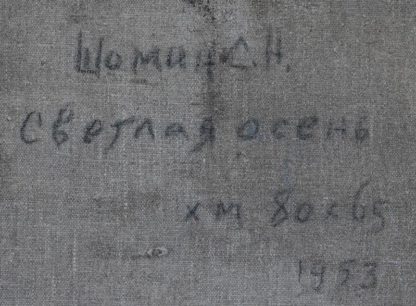 Шомин С.Н.
Светлая осень
хм 80х65
1953